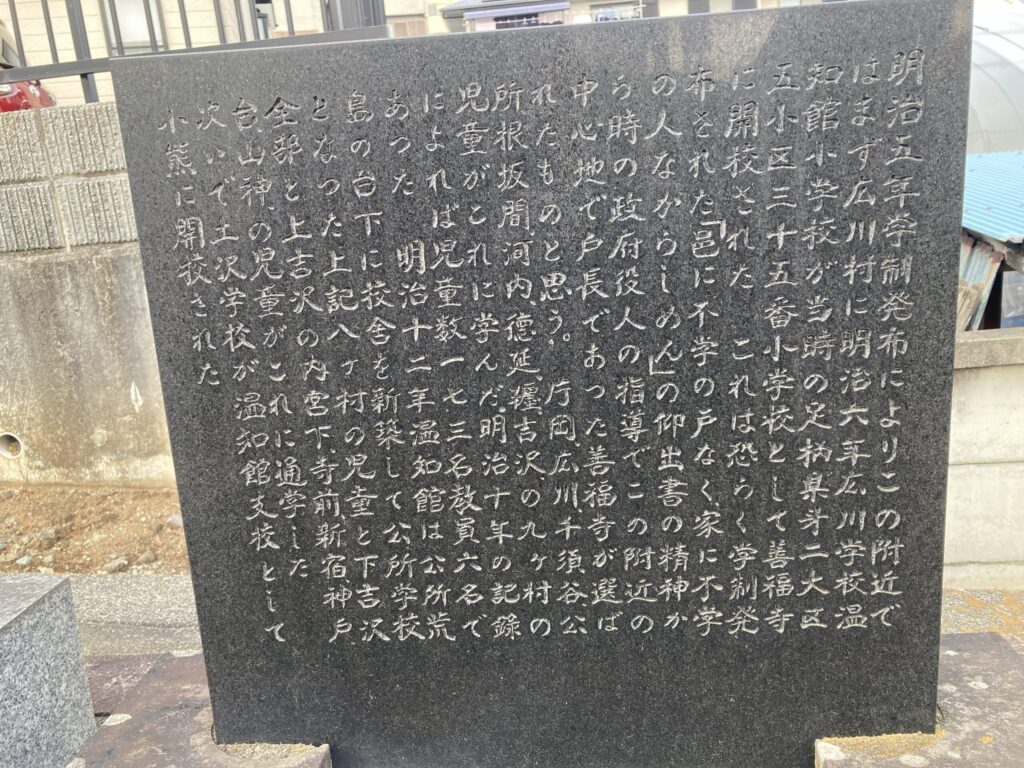 明治五年学制発布によりこの附近で
はまず広川村に明治六年広川学校温
知館小学校が当時の足柄県才二大区
五小区三十五番小学校として善福寺
に開校された これは恐らく学制発
布された「邑に不学の戸なく、家に不学
の人なからしめん」の仰出書の精神か
ら時の政府役人の指導でこの附近の
中心地で戸長であつた善福寺が選ば
れたものと思う。片岡、広川、千須谷、公
所、根坂間、河内、徳延、纒、吉沢の九ヶ村の
児童がこれに学んだ、明治十年の記録
によれば児童数一七三名教員六名で
あつた 明治十二年温知館は公所荒
島の台下に校舎を新築して公所学校
となつた上記八ヶ村の児童と下吉沢
全部と上吉沢の内宮下寺前新宿、神戸
台、山神、の児童がこれに通学した
次いで土沢学校が温知館支校として
小熊に開校された